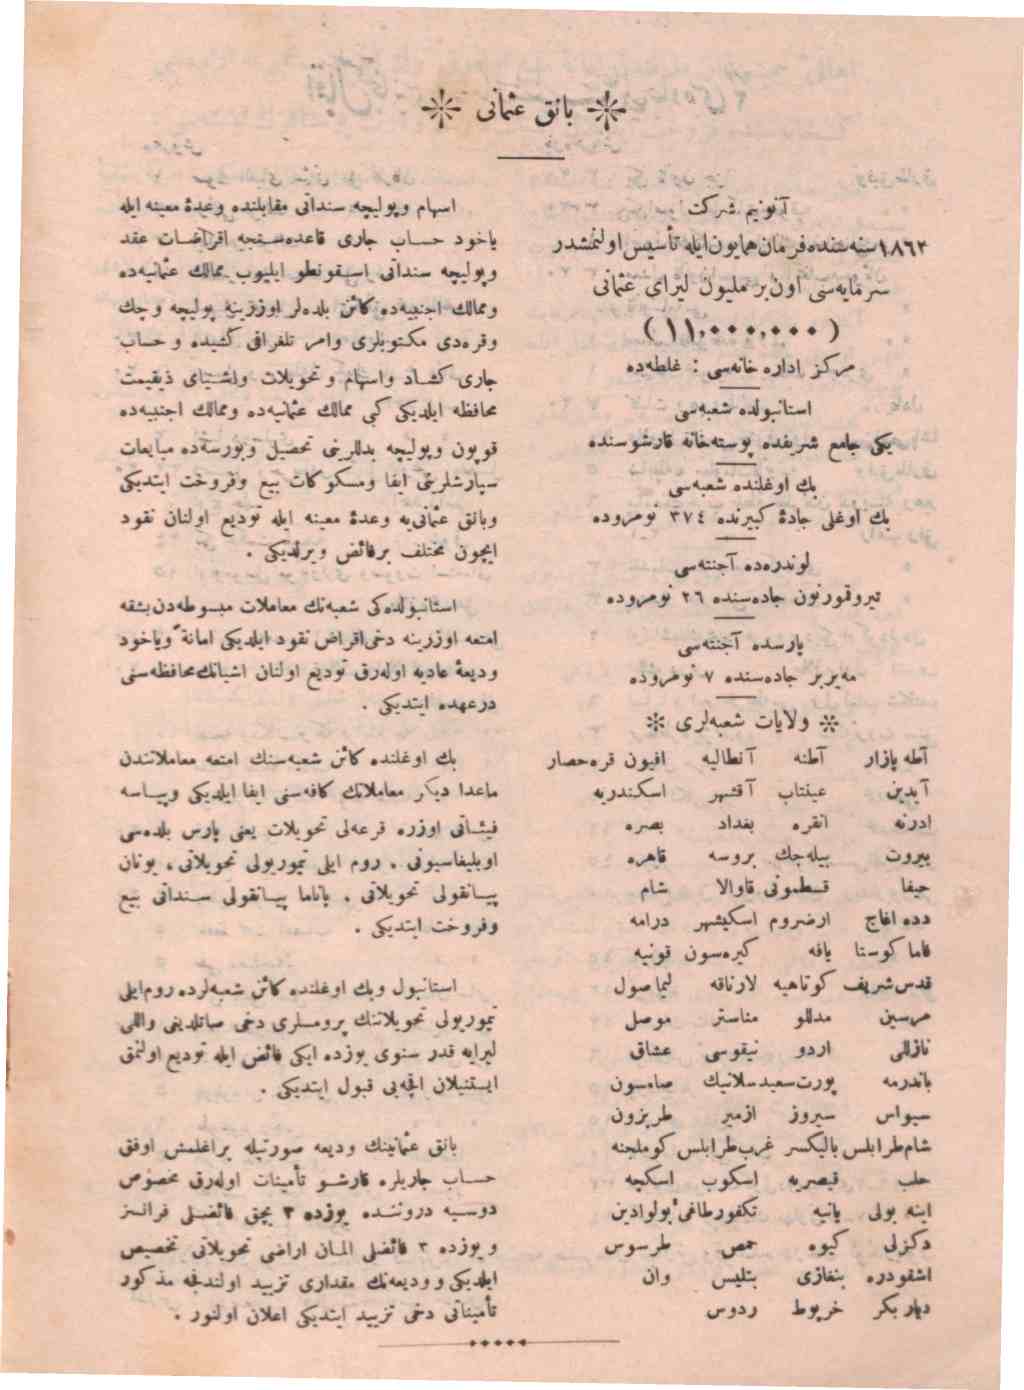 بانق عثمانی
آنونیم شركت
١٨٦٣ سنه‌سنده فرمان همایون ایله تأسیس اولنمشدر
سرمایه‌سی اون بر ملیون لیرای عثمانی
(١١,٠٠٠,٠٠٠)
مركز اداره خانه‌سی : غلطه‌ده
استانبولده شعبه‌سی
یكی جامع شریفده پوسته‌خانه قارشوسنده
بك اوغلنده شعبه‌سی
بك اوغلی جادهٔ كبیرنده ٣٧٤ نومروده
لوندره‌ده آجنته‌سی
تیروقمورتون جاده‌سنده ٢٦ نومروده
پارسده آجنته‌سی
مه‌یربر جاده‌سنده ٧ نومروده
ولایات شعبه‌لری
آطه پازار آطنه آنطالیه افیون قره‌حصار
آیدین عینتاب آقشهر اسكندریه
ادرنه انقره بغداد بصره
بیروت بیله‌جك بروسه قاهره
حیفا قسطمونی قاوالا شام
دده اغاج ارضروم اسكیشهر درامه
فاماكوستا یافه كیره‌سون قونیه
قدس شریف كوتاهیه لارناقه لیماصول
مرسین مدللو مناستر موصل
نازللی اردو نیقوسی عشاق
باندرمه پورت‌سعید سلانیك صامسون
سیواس سیروز ازمیر طربزون
شام‌طرابلس بالیكسر غرب‌طرابلس كوملجنه
حلب قیصریه اسكوب اسكچه
اینه بولی یانیه تكفورطاغی بولوادین
دكزلی كیوه حمص طرسوس
اشقودره بنغازی بتلیس وان
دیاربكر خرپوط ردوس
اسهام وپولیچه سنداتی مقابلنده وعدهٔ معینه ایله
یاخود حساب جاری قاعده‌سنجه اقراضات عقد
وپولیچه سنداتی اسقونطو ایلیوب ممالك عثمانیه‌ده
وممالك اجنبیه‌ده كائن بلده‌لر اوزرینه پولیچه وچك
وقره‌دی مكتوبلری وامر تلغرافی كشیده وحساب
جاری كشاد واسهام وتحویلات واشیای ذیقیمت
محافظه ایلدیكی كبی ممالك عثمانیه‌ده وممالك اجنبیه‌ده
قوپون وپولیچه بدللرینی تحصیل وبورسه‌ده مبایعات
سپارشلرینی ایفا ومسكوكات بیع وفروخت ایتدیكی
وبانق عثمانی‌یه وعدهٔ معینه ایله تودیع اولنان نقود
ایچون مختلف برفائض ویرلدیكی .
استانبولده‌كی شعبه‌نك معاملات مبسوطه‌دن بشقه
امتعه اوزرینه دخی اقراض نقود ایلدیكی امانة ویاخود
ودیعهٔ عادیه اوله‌رق تودیع اولنان اشیانك محافظه‌سنی
درعهده ایتدیكی .
بك اوغلنده كائن شعبه‌سنك امتعه معاملاتندن
ماعدا دیكر معاملاتك كافه‌سنی ایفا ایلدیكی وپیاسه
فیئاتی اوزره قرعه‌لی تحویلات یعنی پارس بلده‌سی
اوبلیغاسیونی ، روم ایلی تیموریولی تحویلاتی ، یونان
پیانقولی تحویلاتی ، پاناما پیانقولی سنداتی بیع
وفروخت ایتدیكی .
استانبول وبك اوغلنده كائن شعبه‌لرده روم‌ایلی
تیموریولی تحویلاتنك پرومسلری دخی صاتلدیغی واللی
لیرایه قدر سنوی یوزده ایكی فائض ایله تودیع اولنمق
ایستنیلان اقچه‌یی قبول ایتدیكی .
بانق عثمانینك ودیعه صورتیله براغلمش اوفق
حساب جاریلره قارشو تأمینات اوله‌رق مخصوص
دوسیه دروننده یوزده ٣ بچق فائضلی فرانسز
ویوزده ٣ فائضلی المان اراضی تحویلاتی تخصیص
ایلدیكی وودیعه‌نك مقداری تزیید اولندقجه مذكور
تأمیناتی دخی تزیید ایتدیكی اعلان اولنور .